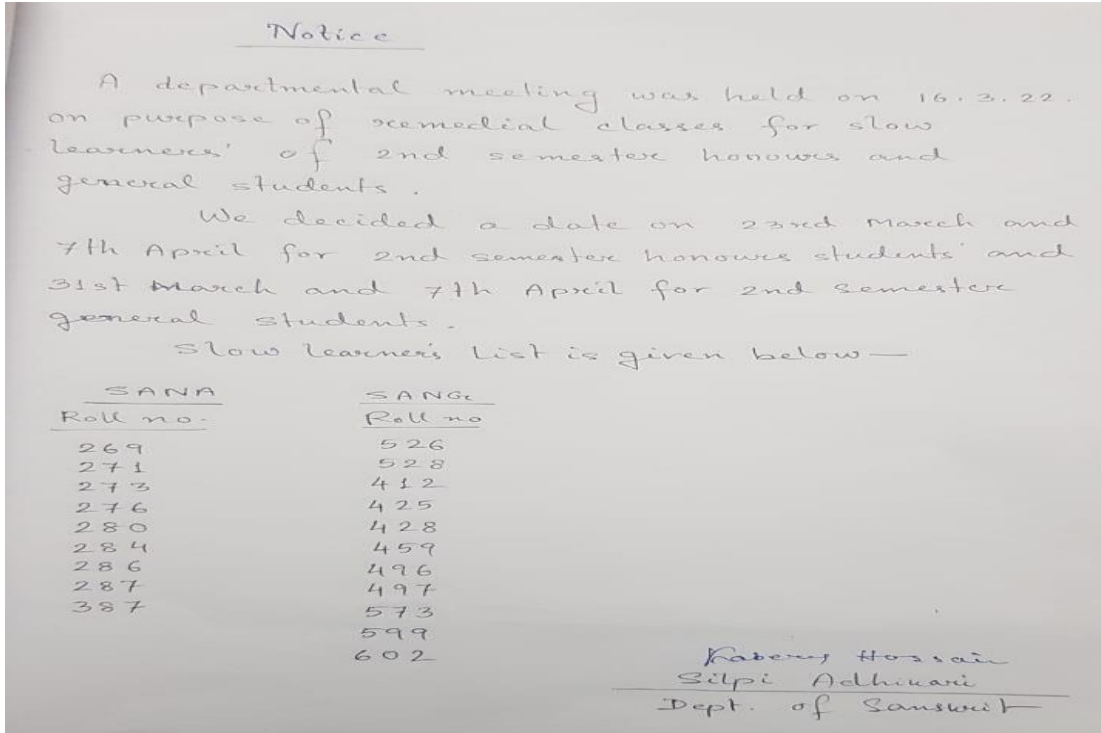 Notice
A departmental meeting was held on 16.3.22.
on purpose of remedial classes for slow
learners' of 2nd semester honours and
general students.
We decided a date on 23rd March and
7th April for 2nd semester honours students' and
31st March and 7th April for 2nd semester
general students.
Slow learner's list is given below—
SANA SANG
Roll no. Roll no
269 526
271 528
273 412
276 425
280 428
284 459
286 496
287 497
387 573
599
602
Kabery Hossain
Silpi Adhikari
Dept. of Sanskrit